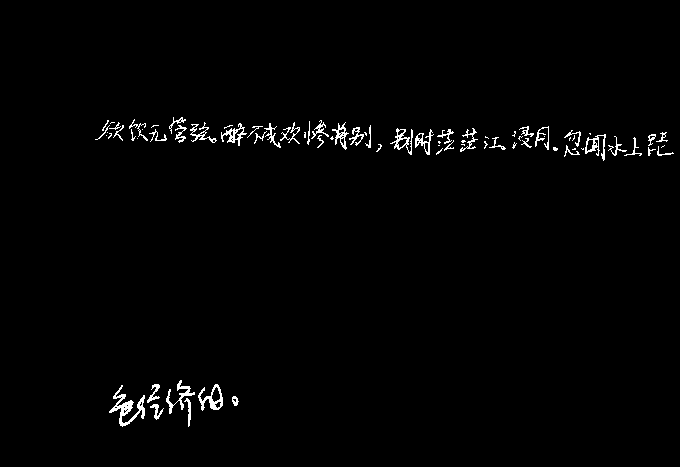 欲饮无管弦。醉不成欢惨将别，别时茫茫江浸月.忽闻水上
色经济的。